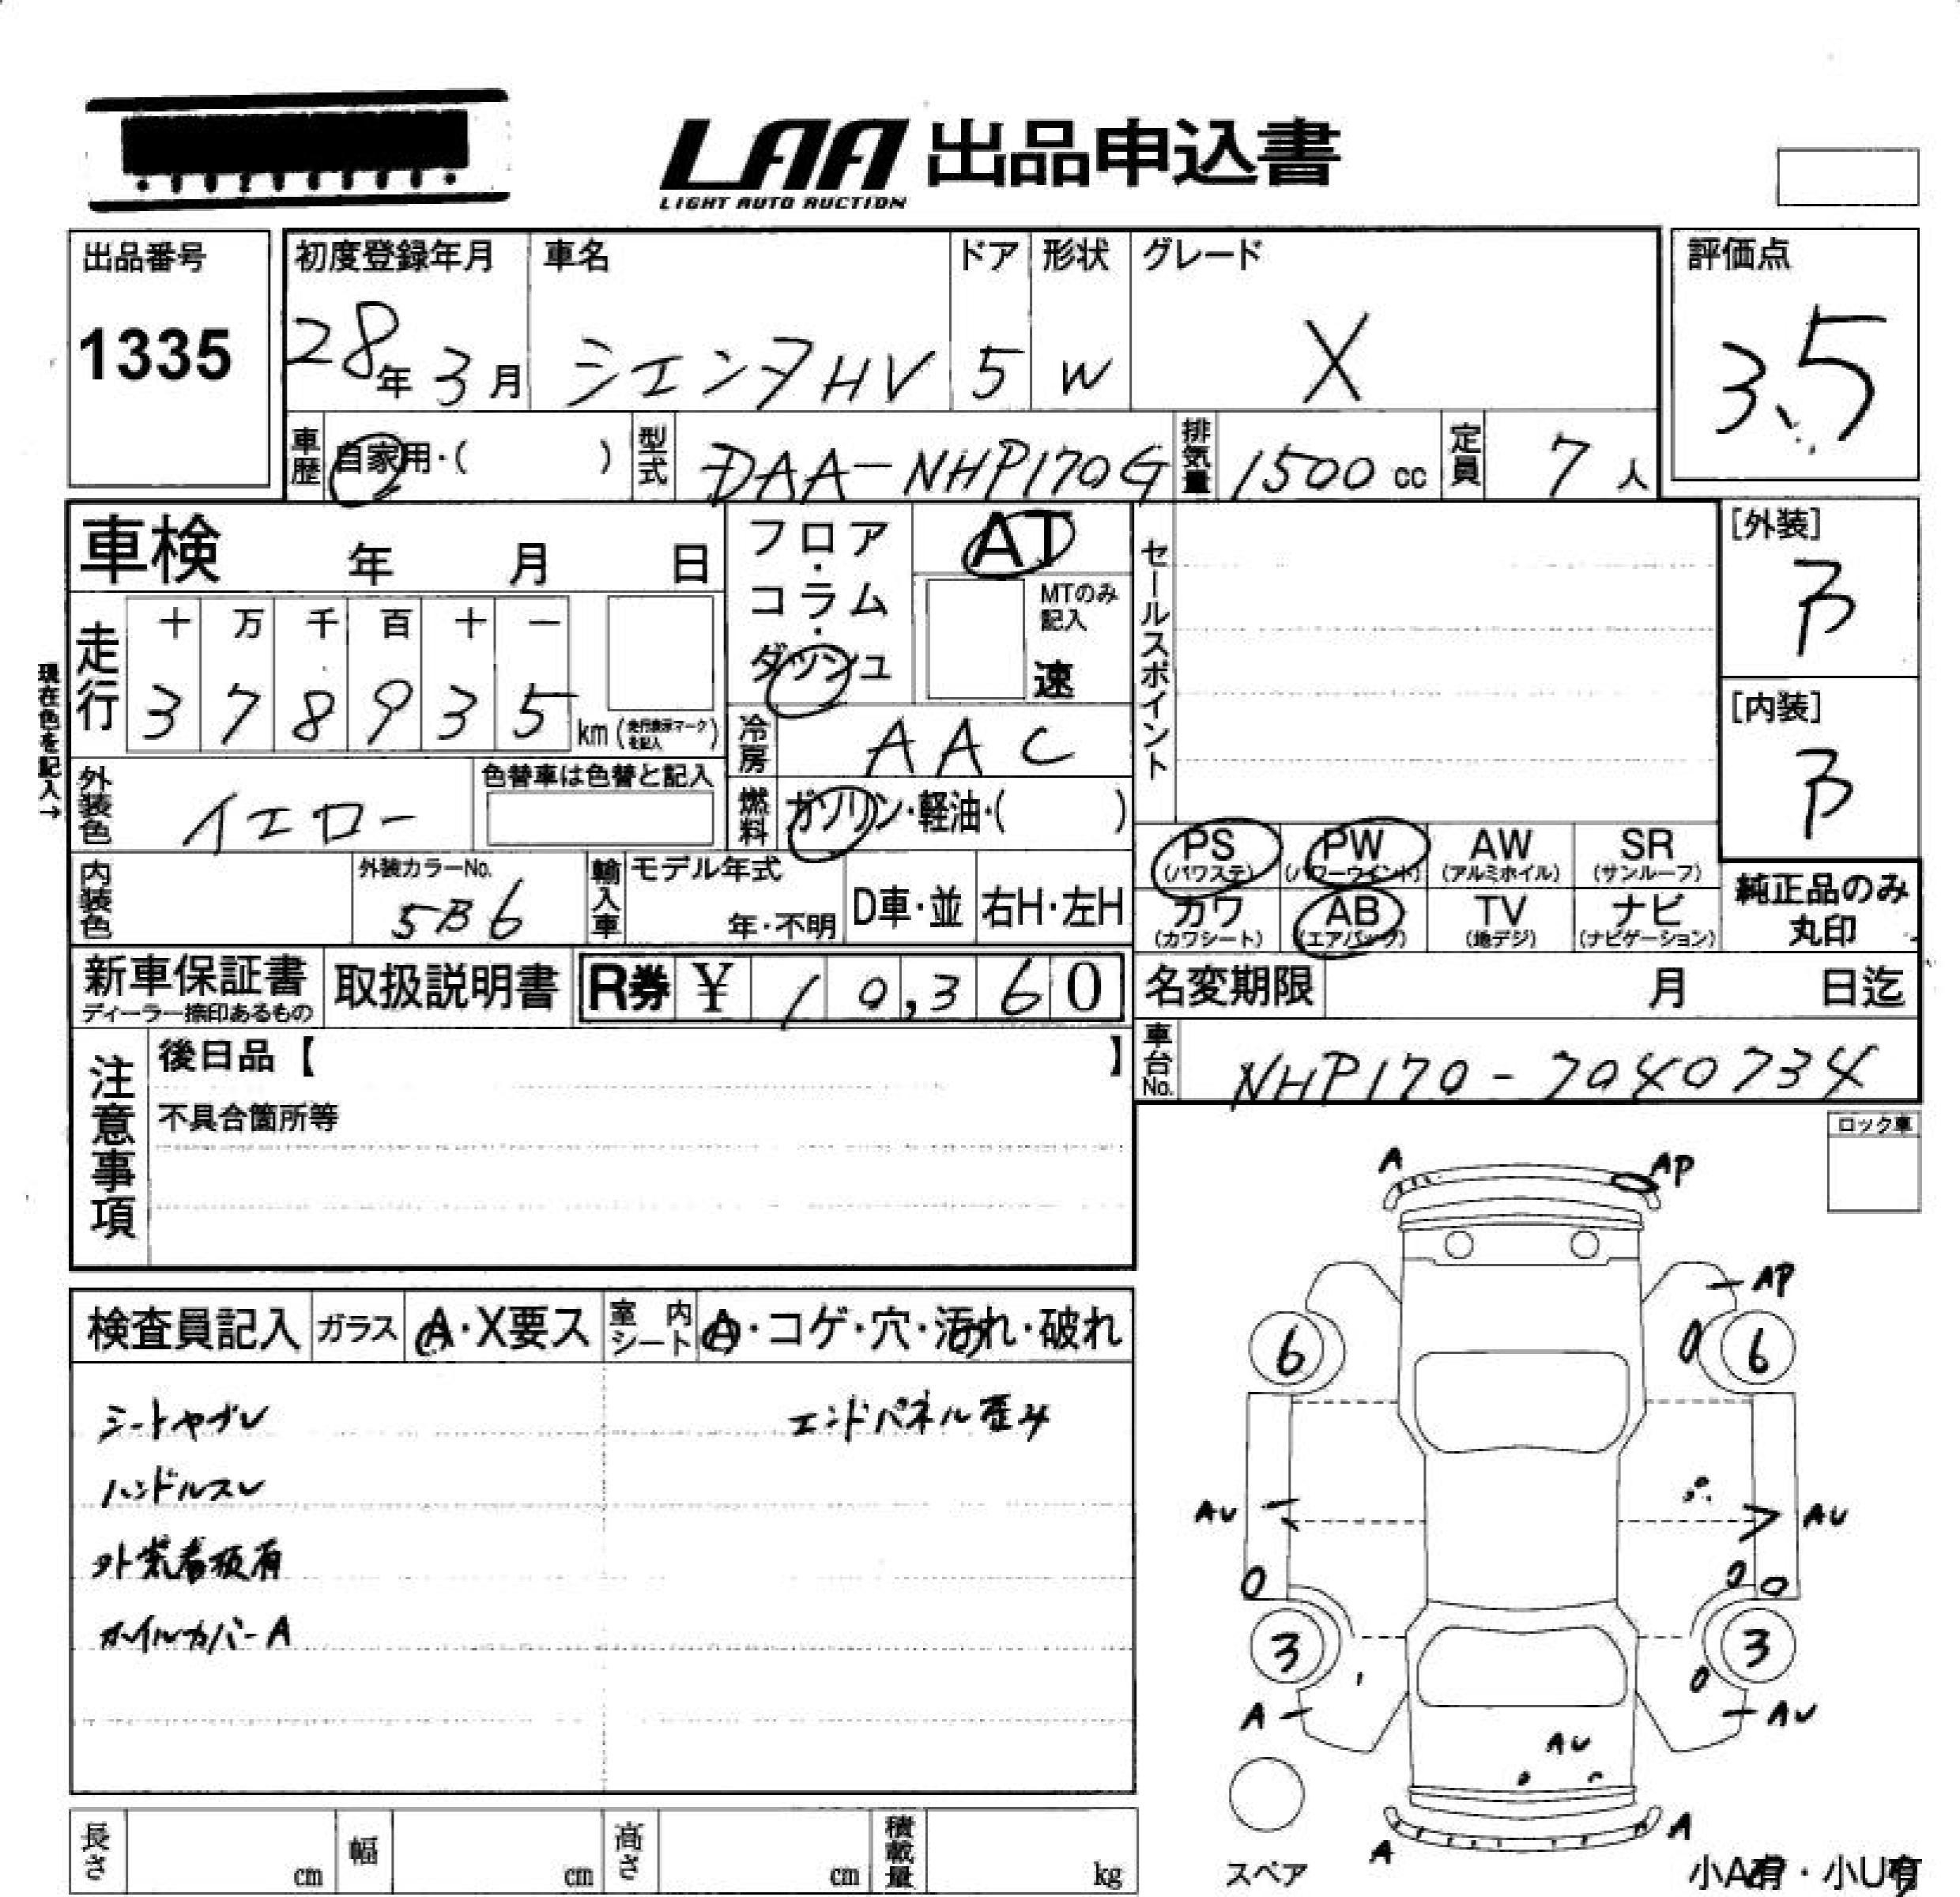 LAA 出品申込書
LIGHT AUTO AUCTION
出品番号
1335
初度登録年月
28年 3月
車名
シエンタHV
ドア
5
形状
W
グレード
X
評価点
3.5
車歴 自家用・( )
型式 DAA-NHP170G
排気量 1500 cc
定員 7 人
車検 年 月 日
フロア・コラム・ダッシュ
AT
MTのみ記入
速
セールスポイント
[外装]
B
[内装]
B
現在色を記入→
走行
十 万 千 百 十 一
3 7 8 9 3 5 km (走行表示マークを記入)
冷房 AAC
外装色 イエロー
色替車は色替と記入
燃料 ガソリン・軽油・( )
PS (パワステ) PW (パワーウインド) AW (アルミホイル) SR (サンルーフ)
カワ (カワシート) AB (エアバック) TV (地デジ) ナビ (ナビゲーション)
純正品のみ丸印
内装色
外装カラーNo.
5B6
輸入車
モデル年式
年・不明
D車・並
右H・左H
新車保証書
ディーラー捺印あるもの
取扱説明書
R券 ¥ 10,360
名変期限 月 日迄
車台No. NHP170-7040734
注意事項
後日品【 】
不具合箇所等
ロック車
検査員記入 ガラス A・X要ス 室内シート A・コゲ・穴・汚れ・破れ
シートヤブレ
エンドパネル歪み
ハンドルスレ
外装看板有
ホイルカバーA
A
AP
AP
6
6
AU
AU
3
3
A
AU
AU
A
A
スペア
小A有・小U有
長さ cm
幅 cm
高さ cm
積載量 kg